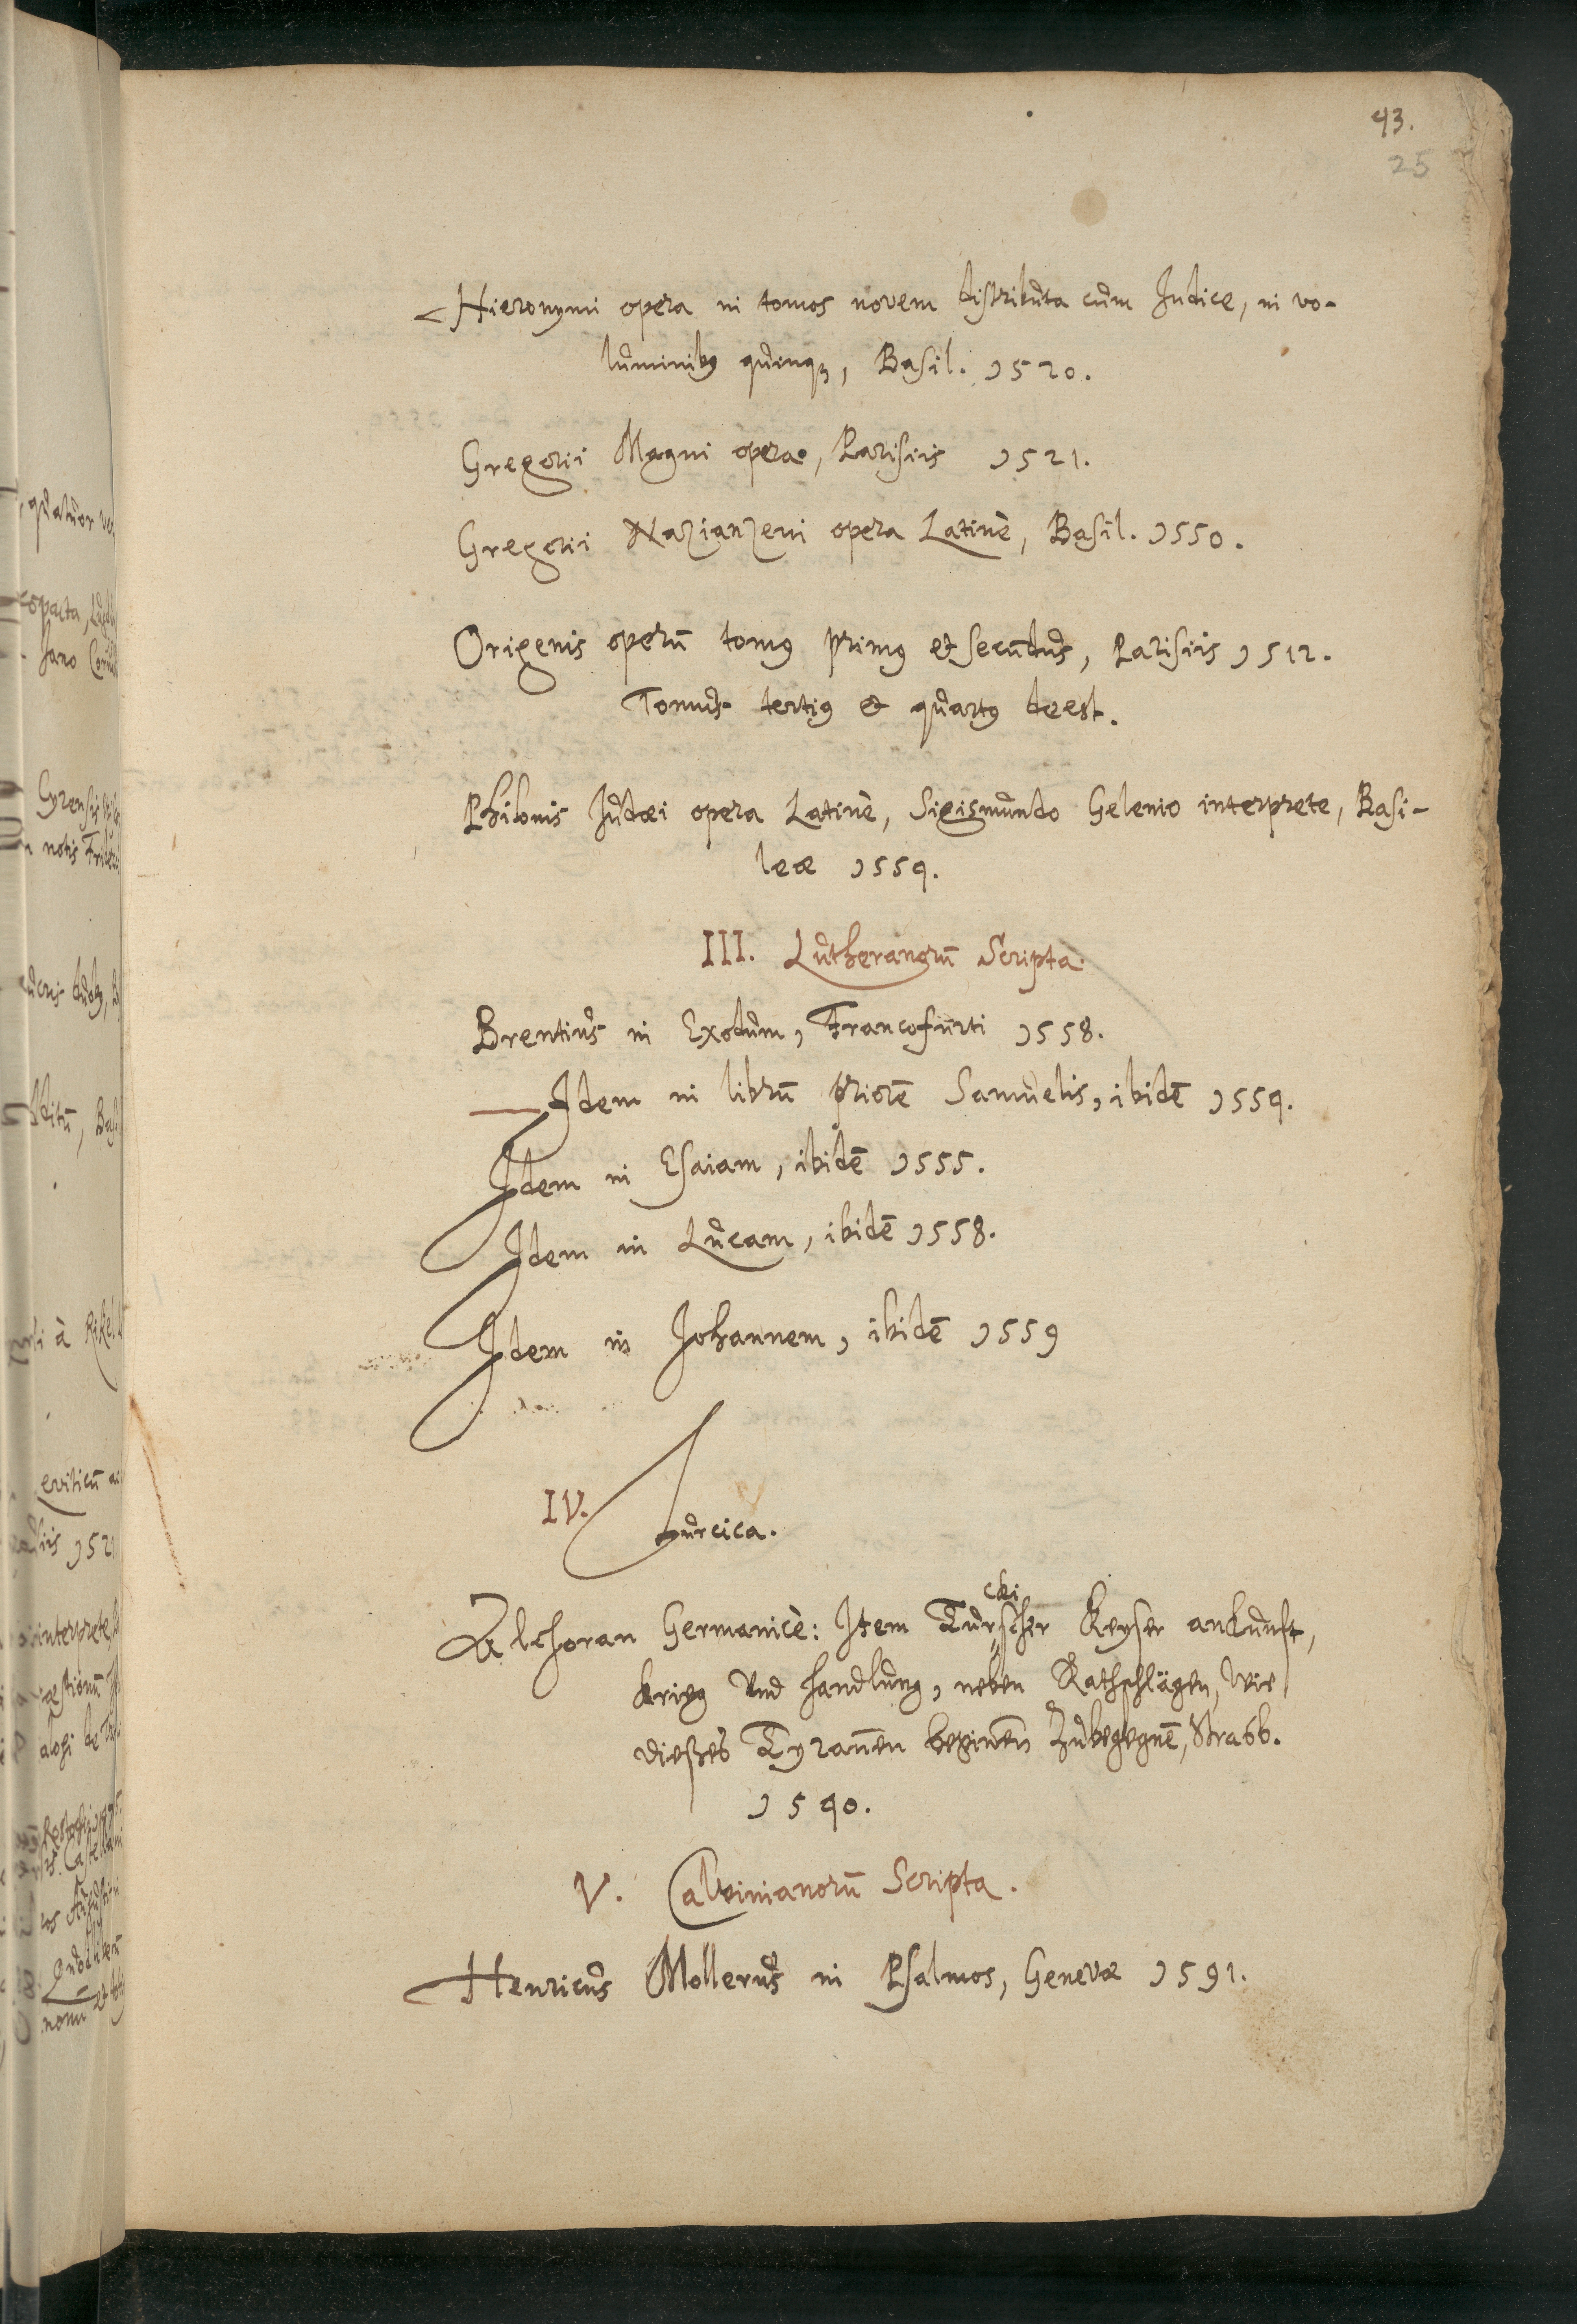 43.
25
Hieronymi opera in tomos novem distributa cum Indice, in vo-
luminibꝯ quinqꝫ, Basil. 1520.
Gregorii Magni opera, Parisiis 1521.
Gregorii Nazianzeni opera Latinè, Basil. 1550.
Origenis operū tomꝯ primꝯ et secundus, Parisiis 1512.
Tomus tertiꝯ et quartꝯ deest.
Philonis Judæi opera Latinè, Sigismundo Gelenio interprete, Basi-
leæ 1554.
III. Lutheranorū Scripta.
Brentius in Exodum, Francofurti 1558.
Idem in librū priorē Samuelis, ibidē 1554.
Idem in Esaiam, ibidē 1555.
Idem in Lucam, ibidē 1558.
Idem in Johannem, ibidē 1559
IV. Turcica.
cki
Alchoran Germanicè: Item Türscher Keyser ankunft,
krieg und handlung, neben Rathschlägen, wie
dießes Tyrannen beginnen zubegegnē, Strasb.
1540.
V. Calvinianorū Scripta.
Henricus Mollerus in Psalmos, Genevæ 1591.